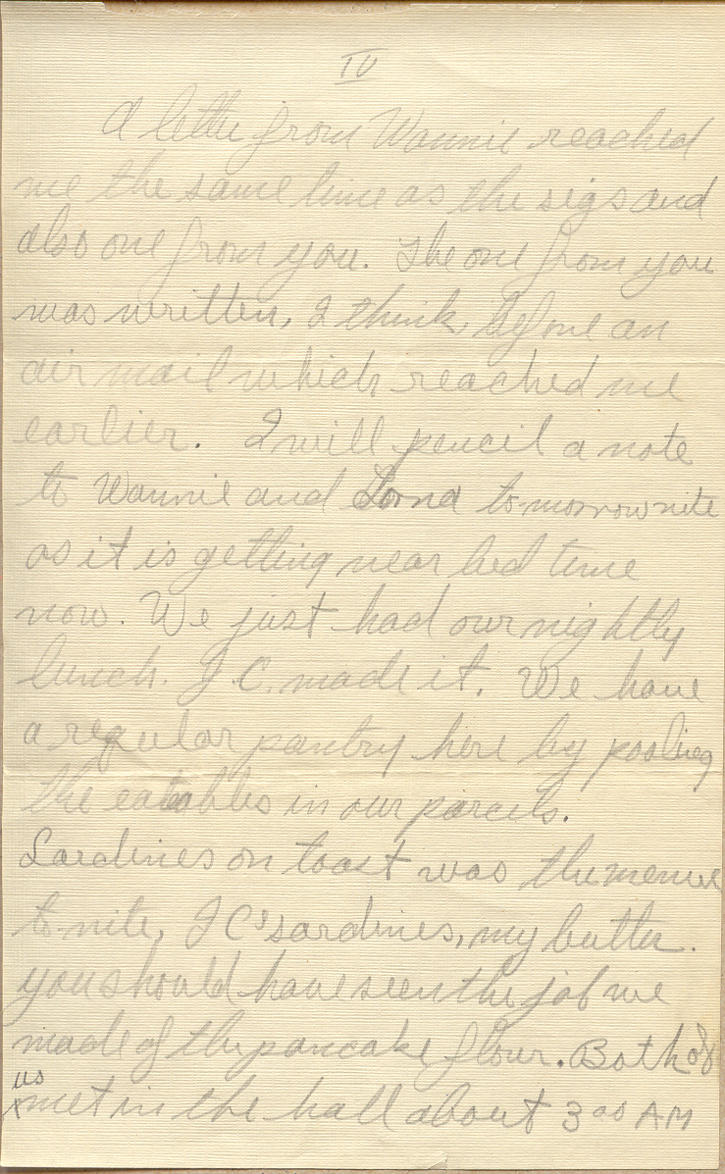 IV
A letter from Wannie reached
me the same time as the sigs and
also one from you. The one from you
was written, I think, before an
air mail which reached me
earlier. I will pencil a note
to Wannie and Lorna tomorrow nite
as it is getting near bed time
now. We just had our nightly
lunch. J.C. made it. We have
a regular pantry here by pooling
the eatables in our parcels.
Sardines on toast was the menue
to-nite, J C's sardines, my butter.
you should have seen the job we
made of the pancake flour. Both of
us met in the hall about 3 00 AM